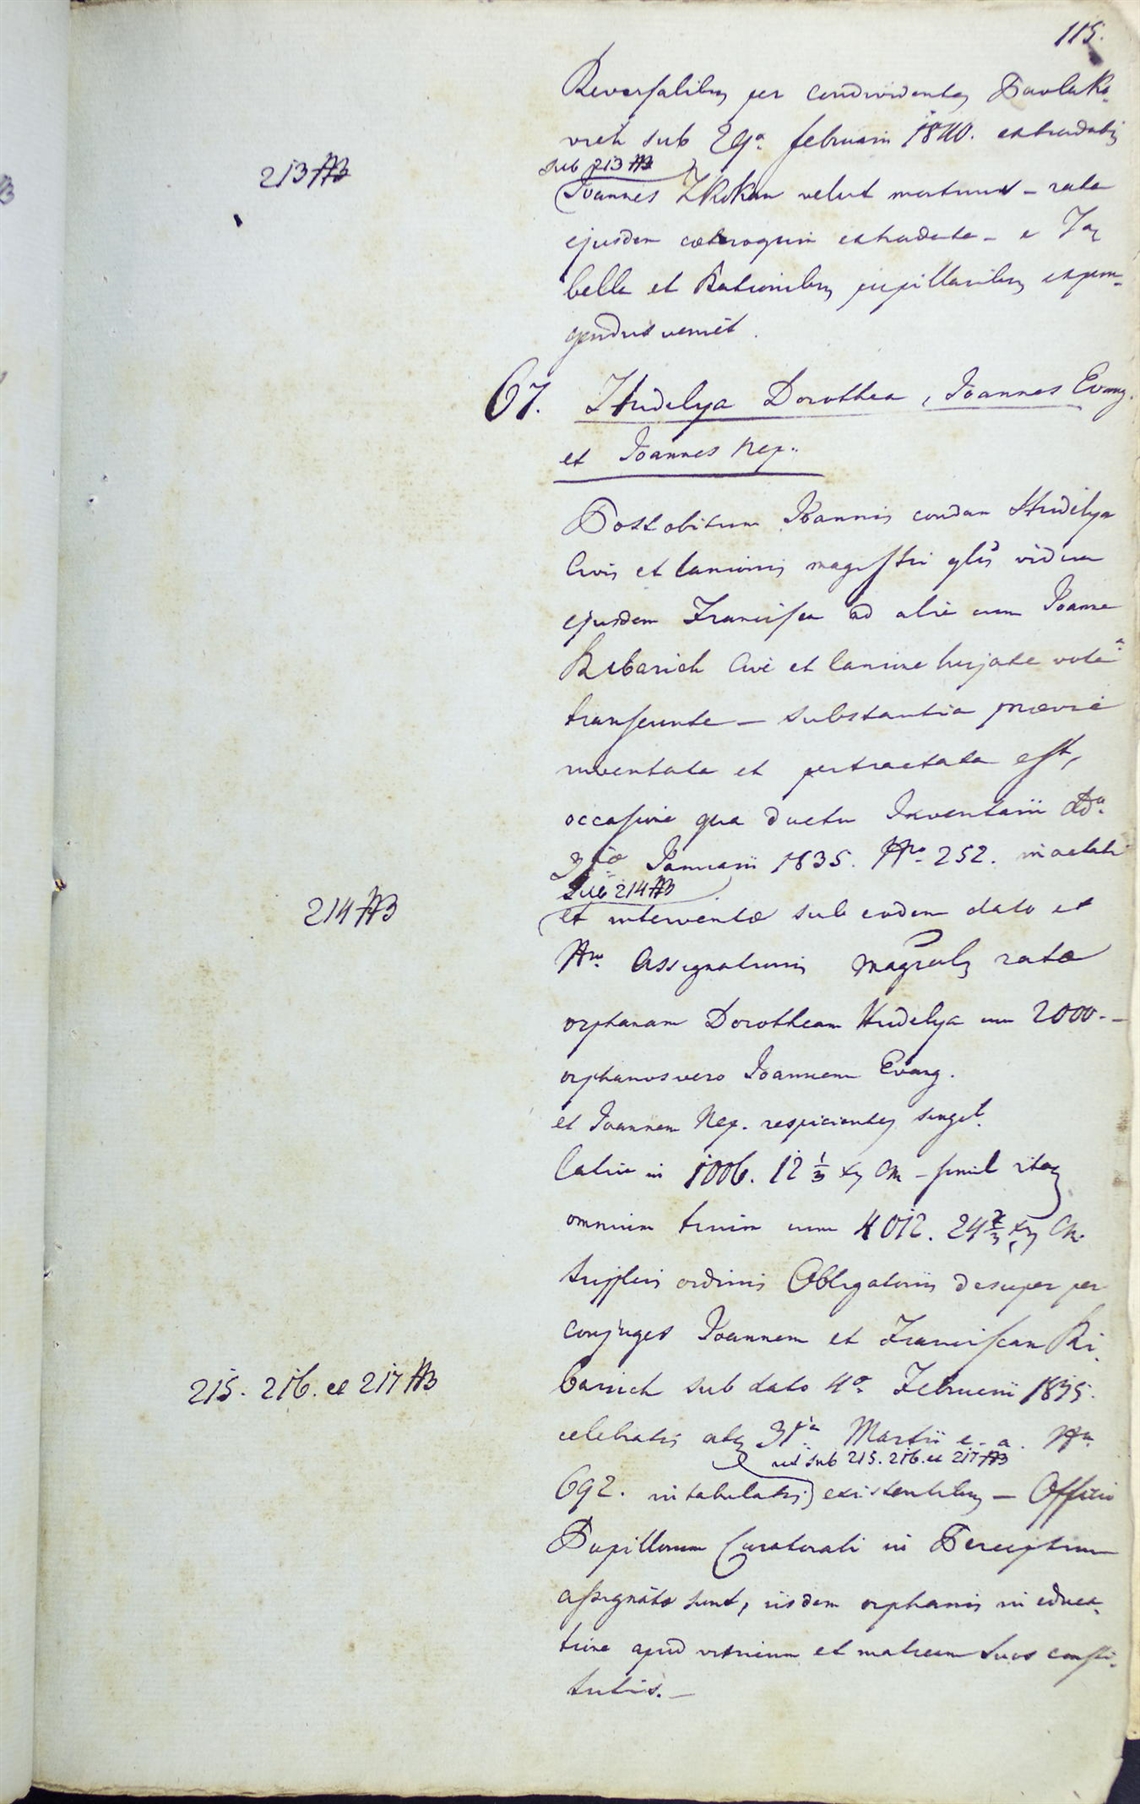 115.
Reversalibus per condividentes Pavleko-
vich sub 29a. februarii 1840. extradatis
213 #B
sub 213 #B
Joannes Zkokan velut mortuus - rata
ejusdem caeteroquin extradata - e Ta
bella et Rationibus pupillaribus expun-
gendus veniet.
67. Hudelya Dorothea, Joannes Evang.
et Joannes Nep.
Post obitum Joannis condam Hudelya
Civis et lanionis magistri vidua
ejusdem Francisca ad alia cum Joanne
Ribarich Cive et lanione hujate vota
transeunte — substantia praevie
inventata et pertractata est,
occasione qua ductu Inventarii ddo.
Januarii 1835. Nro. 252.
214 #B
Sub 214 #B
et interventae sub eodem dato et
Nro. Assignationis ratae
orphanam Dorotheam Hudelya cum 2000.-
orphanos vero Joannem Evang.
et Joannem Nep. respicientes singil.
latim in 1006. 12 1/3 xr CM - simul itaq
omnium trium cum 4012. 24 2/3 xr CM
triplicis ordinis Obligatoriis desuper per
conjuges Joannem et Franciscam Ri-
215. 216. et 217 #B
barich sub dato 4a. Februarii 1835.
celebratis atq 31a Martii e. a. Nro
sub 215. 216. et 217 #B
692. intabulatis existentibus — Officio
Pupillorum Curatorali in Perceptum
assignatae sunt, iisdem orphanis in educa-
tione apud vitricum et matrem suos consti-
tutis.—